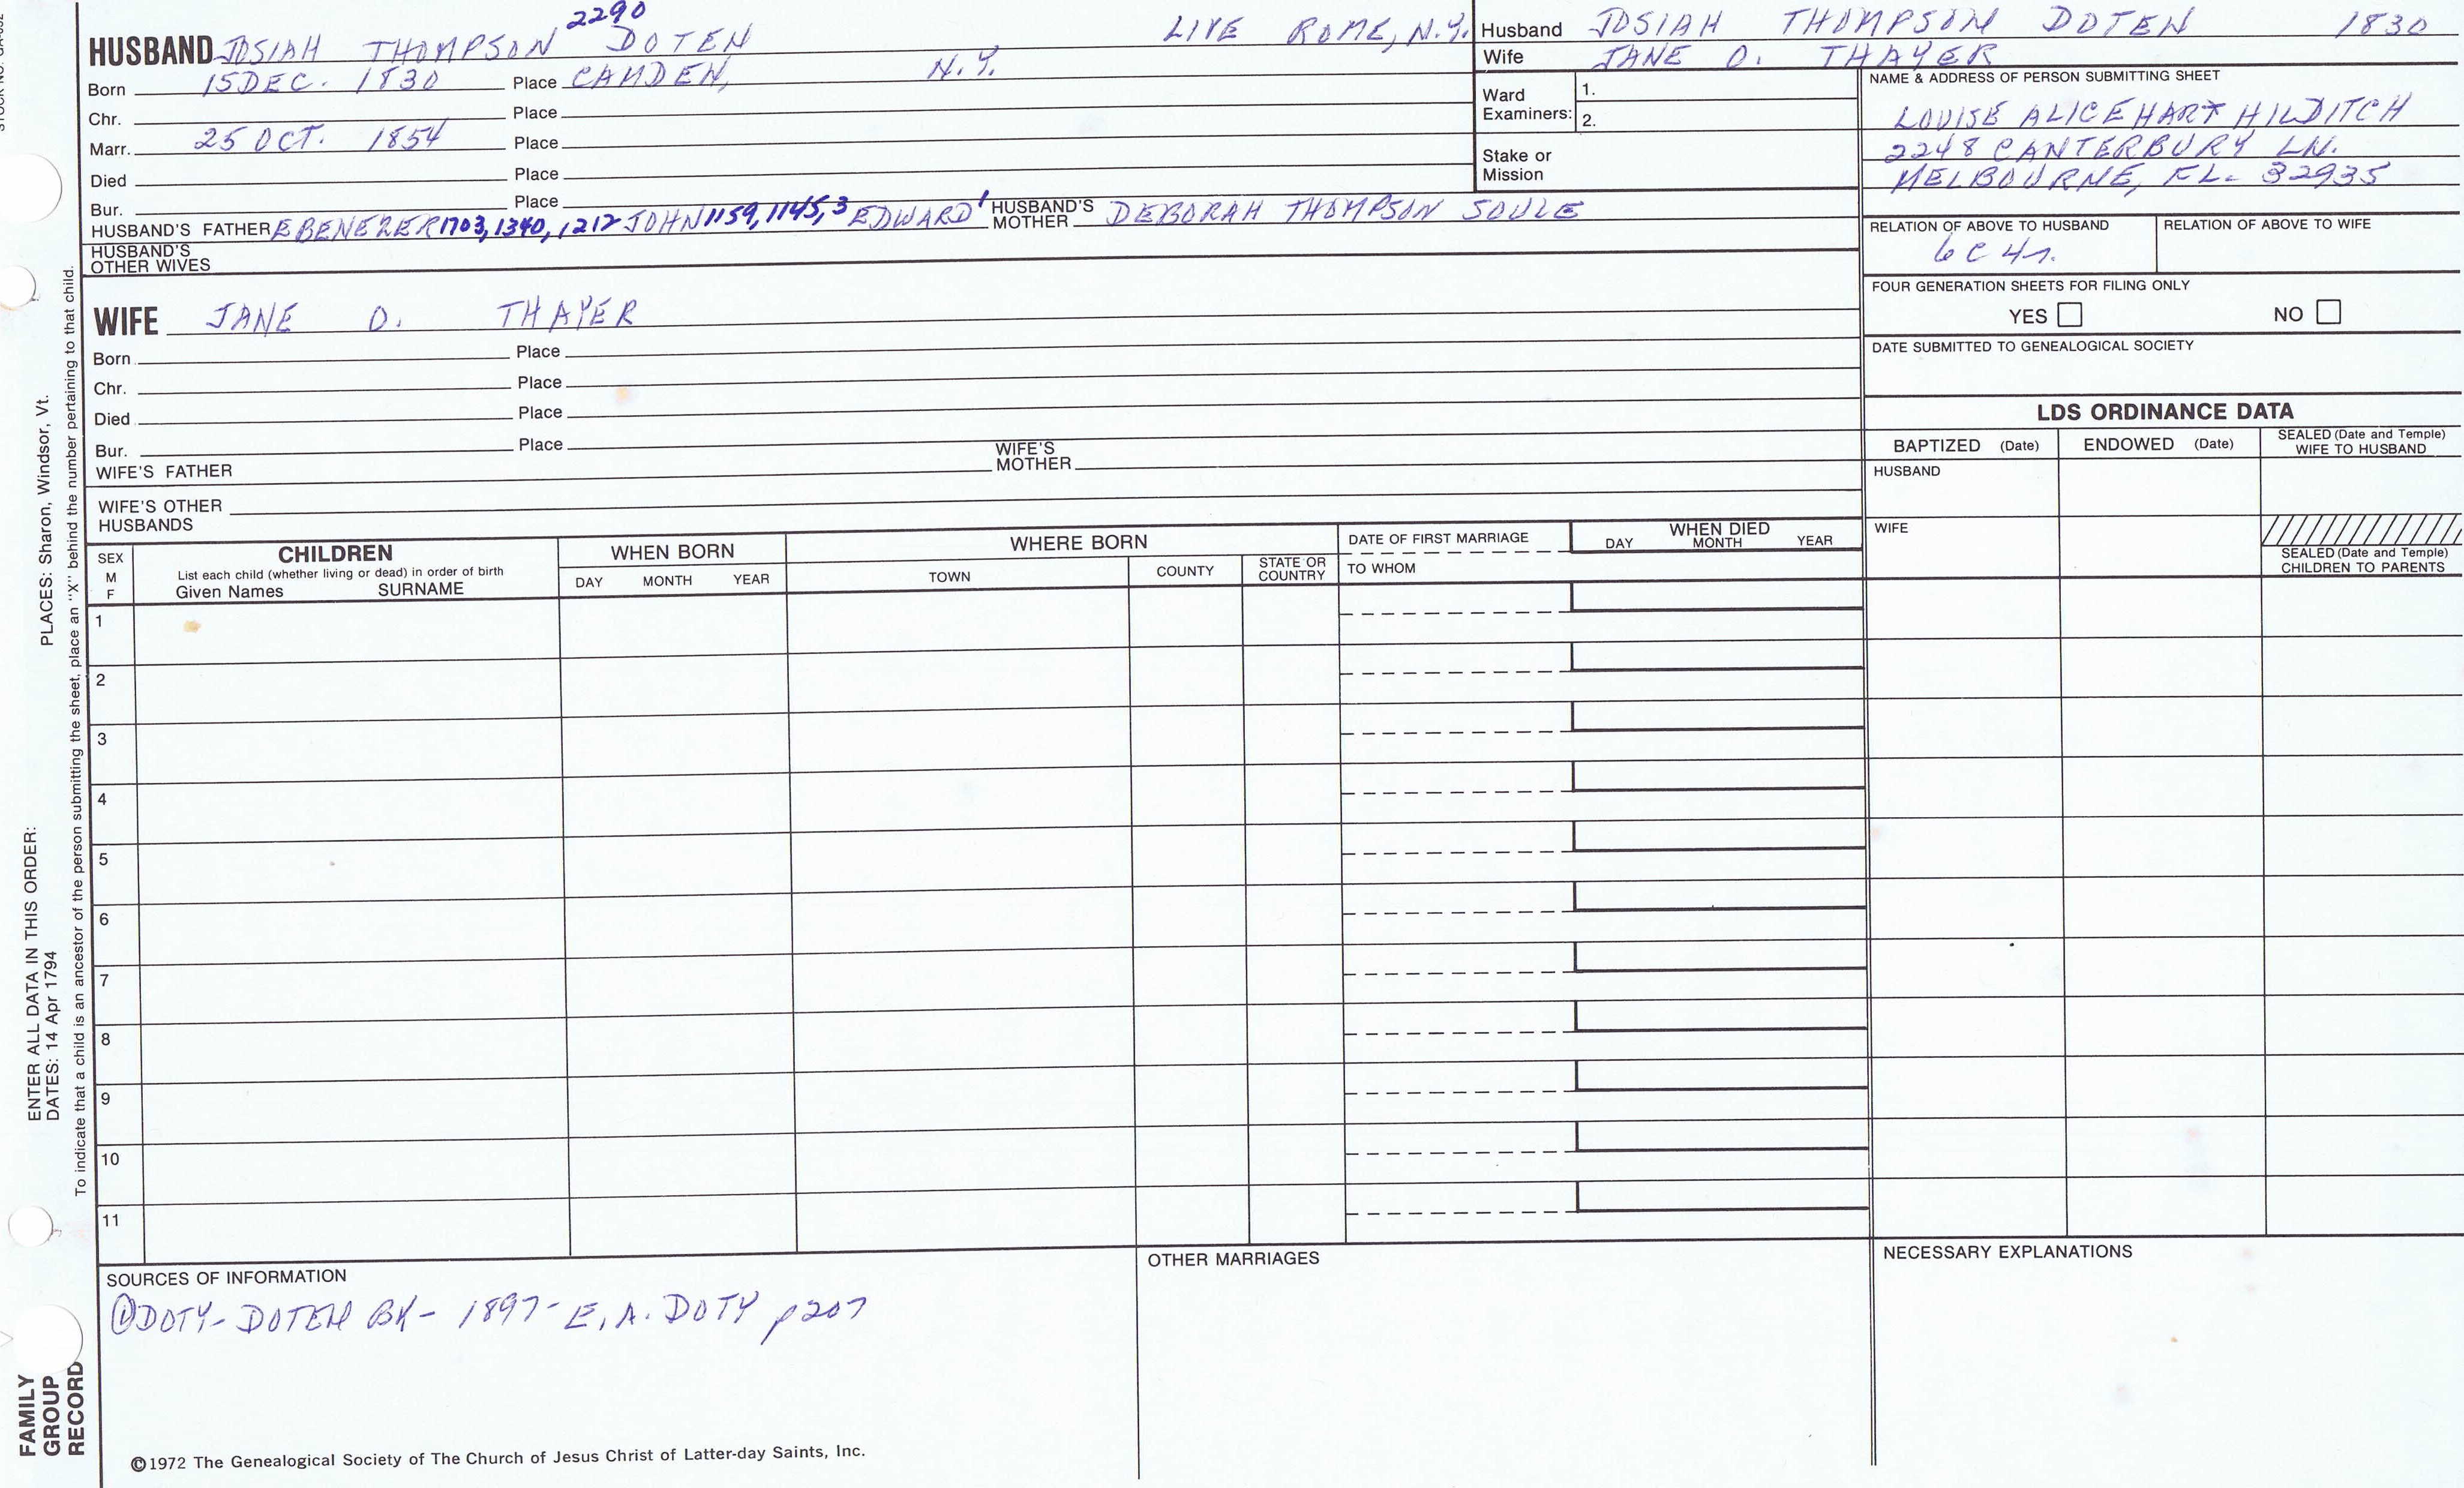 2290
HUSBAND JOSIAH THOMPSON DOTEN LIVE ROME, N.Y.
Born 15 DEC. 1830 Place CAMDEN, N.Y.
Chr. Place
Marr. 25 OCT. 1854 Place
Died Place
Bur. Place
HUSBAND'S FATHER EBENEZER 1703, 1340, 1212 JOHN 1159, 1145, 3 EDWARD 1 HUSBAND'S MOTHER DEBORAH THOMPSON SOULE
HUSBAND'S OTHER WIVES
WIFE JANE O. THAYER
Born Place
Chr. Place
Died Place
Bur. Place
WIFE'S FATHER WIFE'S MOTHER
WIFE'S OTHER HUSBANDS
Husband JOSIAH THOMPSON DOTEN 1830
Wife JANE O. THAYER
Ward Examiners: 1.
2.
Stake or Mission
NAME & ADDRESS OF PERSON SUBMITTING SHEET
LOUISE ALICE HART HILDITCH
2248 CANTERBURY LN.
MELBOURNE, FL. 32935
RELATION OF ABOVE TO HUSBAND RELATION OF ABOVE TO WIFE
6C4r.
FOUR GENERATION SHEETS FOR FILING ONLY
YES NO
DATE SUBMITTED TO GENEALOGICAL SOCIETY
LDS ORDINANCE DATA
BAPTIZED (Date) ENDOWED (Date) SEALED (Date and Temple) WIFE TO HUSBAND
HUSBAND
WIFE
SEALED (Date and Temple) CHILDREN TO PARENTS
SEX M F
CHILDREN
List each child (whether living or dead) in order of birth
Given Names SURNAME
WHEN BORN
DAY MONTH YEAR
WHERE BORN
TOWN COUNTY STATE OR COUNTRY
DATE OF FIRST MARRIAGE
TO WHOM
WHEN DIED
DAY MONTH YEAR
1
2
3
4
5
6
7
8
9
10
11
SOURCES OF INFORMATION
① DOTY-DOTEN BK - 1897 - E. A. DOTY p207
OTHER MARRIAGES
NECESSARY EXPLANATIONS
©1972 The Genealogical Society of The Church of Jesus Christ of Latter-day Saints, Inc.
ENTER ALL DATA IN THIS ORDER:
DATES: 14 Apr 1794
PLACES: Sharon, Windsor, Vt.
To indicate that a child is an ancestor of the person submitting the sheet, place an "X" behind the number pertaining to that child.
FAMILY
GROUP
RECORD